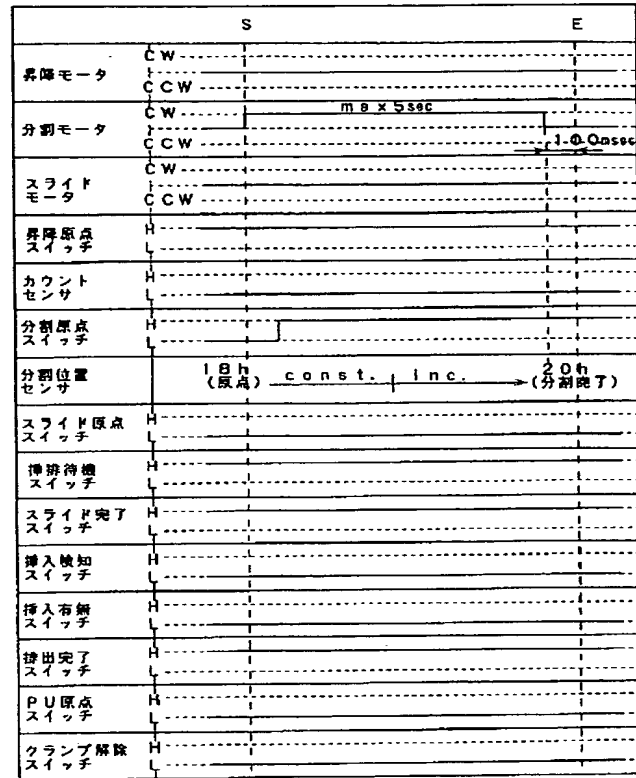 S E
昇降モータ
CW
CCW
分割モータ
CW
max 5sec
CCW
100msec
スライド
モータ
CW
CCW
昇降原点
スイッチ
H
L
カウント
センサ
H
L
分割原点
スイッチ
H
L
分割位置
センサ
18h
(原点)
const. inc.
20h
(分割完了)
スライド原点
スイッチ
H
L
挿排待機
スイッチ
H
L
スライド完了
スイッチ
H
L
挿入検知
スイッチ
H
L
挿入有無
スイッチ
H
L
排出完了
スイッチ
H
L
PU原点
スイッチ
H
L
クランプ解除
スイッチ
H
L